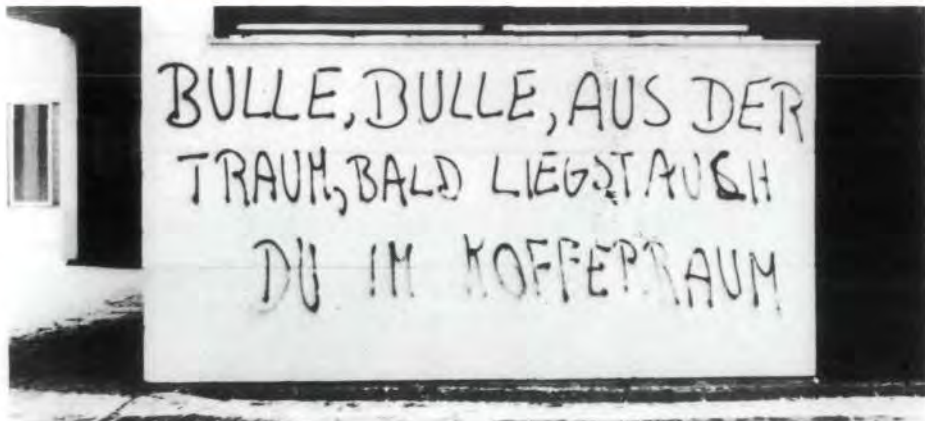 BULLE, BULLE, AUS DER
TRAUM, BALD LIEGST AUCH
DU IM KOFFERRAUM